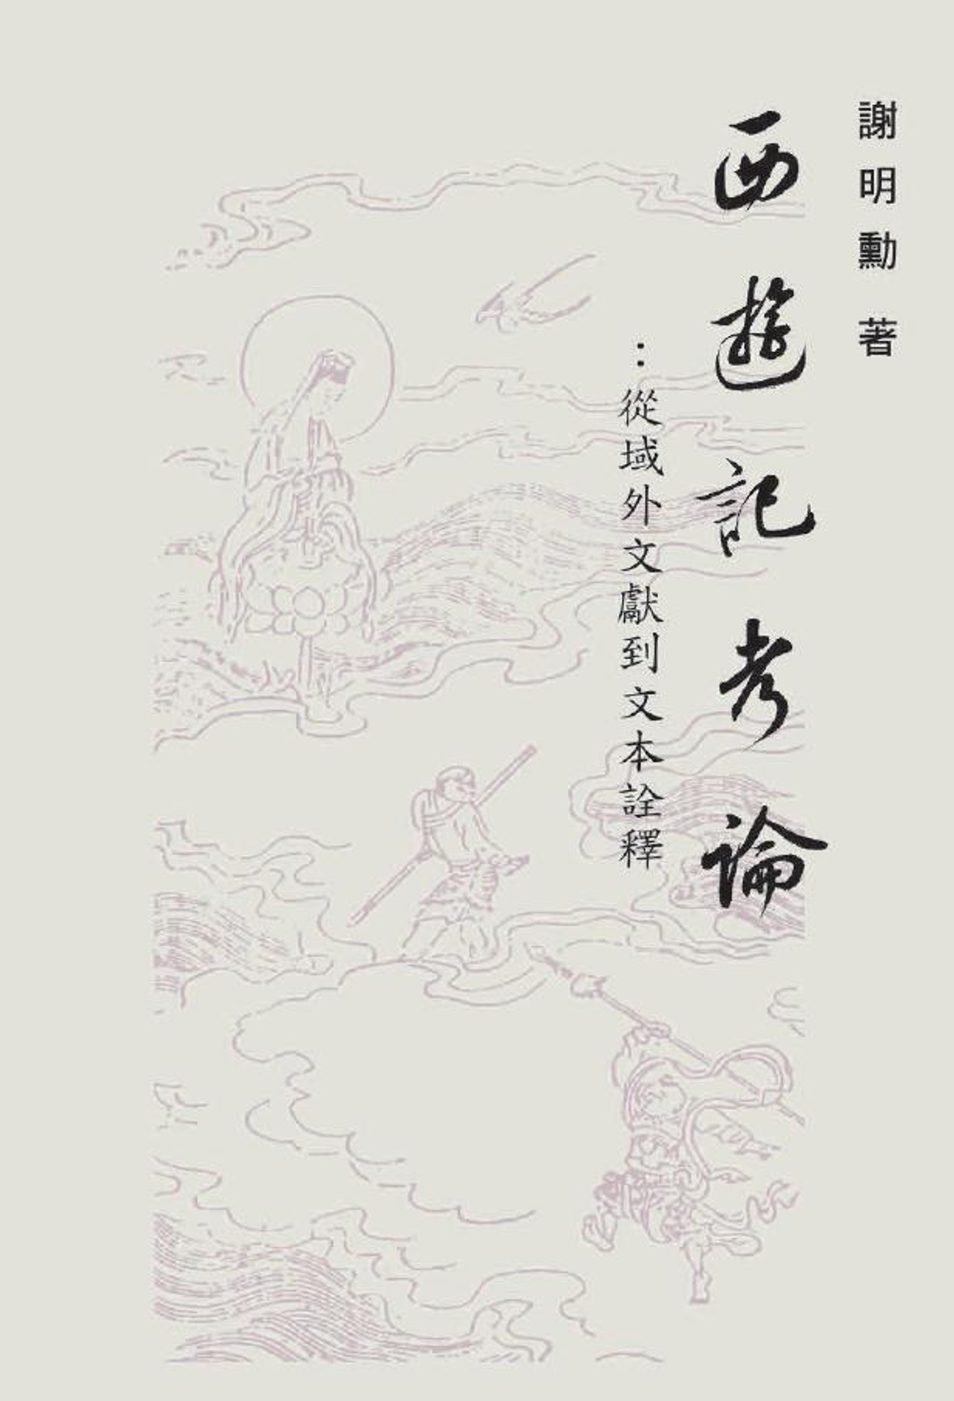 謝明勳 著
西遊記考論
：從域外文獻到文本詮釋